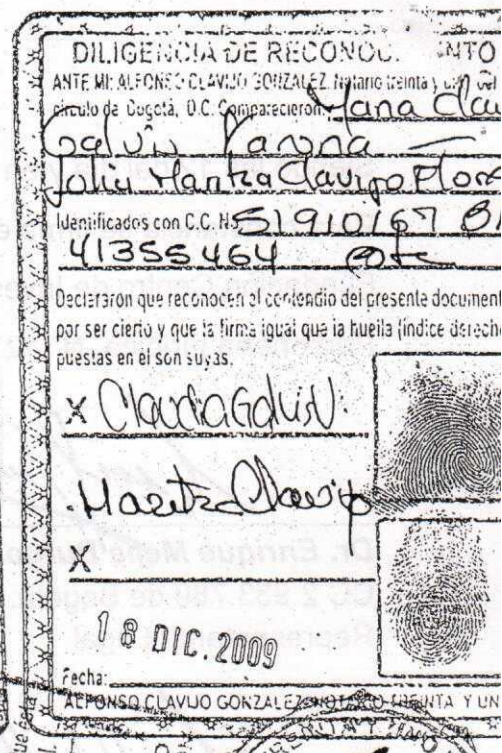 DILIGENCIA DE RECONOC. NTO
ANTE MI: ALFONSO CLAVIJO GONZALEZ, Notario treinta y del
círculo de Bogotá, D.C. Comparecieron:
Galvis
Maritza Clavijo
Identificados con C.C. N. 51910167
41355464
Declararon que reconocen el contendio del presente document
por ser cierto y que la firma igual que la huella (índice derech
puestas en él son suyas.
X Claudia Galvis.
Maritza Clavijo
X
18 DIC. 2009
Fecha:
ALFONSO CLAVIJO GONZALEZ NOTARIO TREINTA Y UN
Dr. Enrique